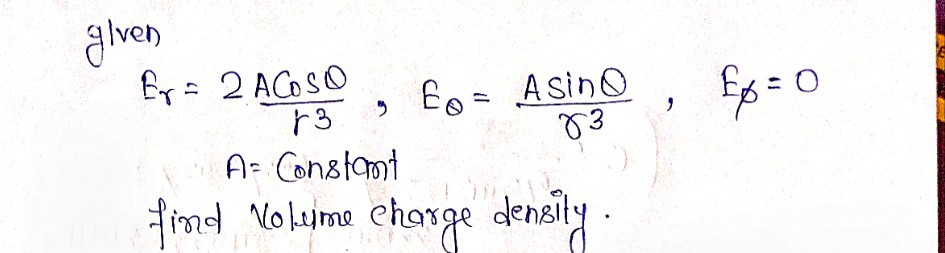 given
Er = 2 A Cosθ / r3 , Eθ = A sinθ / r3 , Eϕ = 0
A = Constant
find Volume charge density.